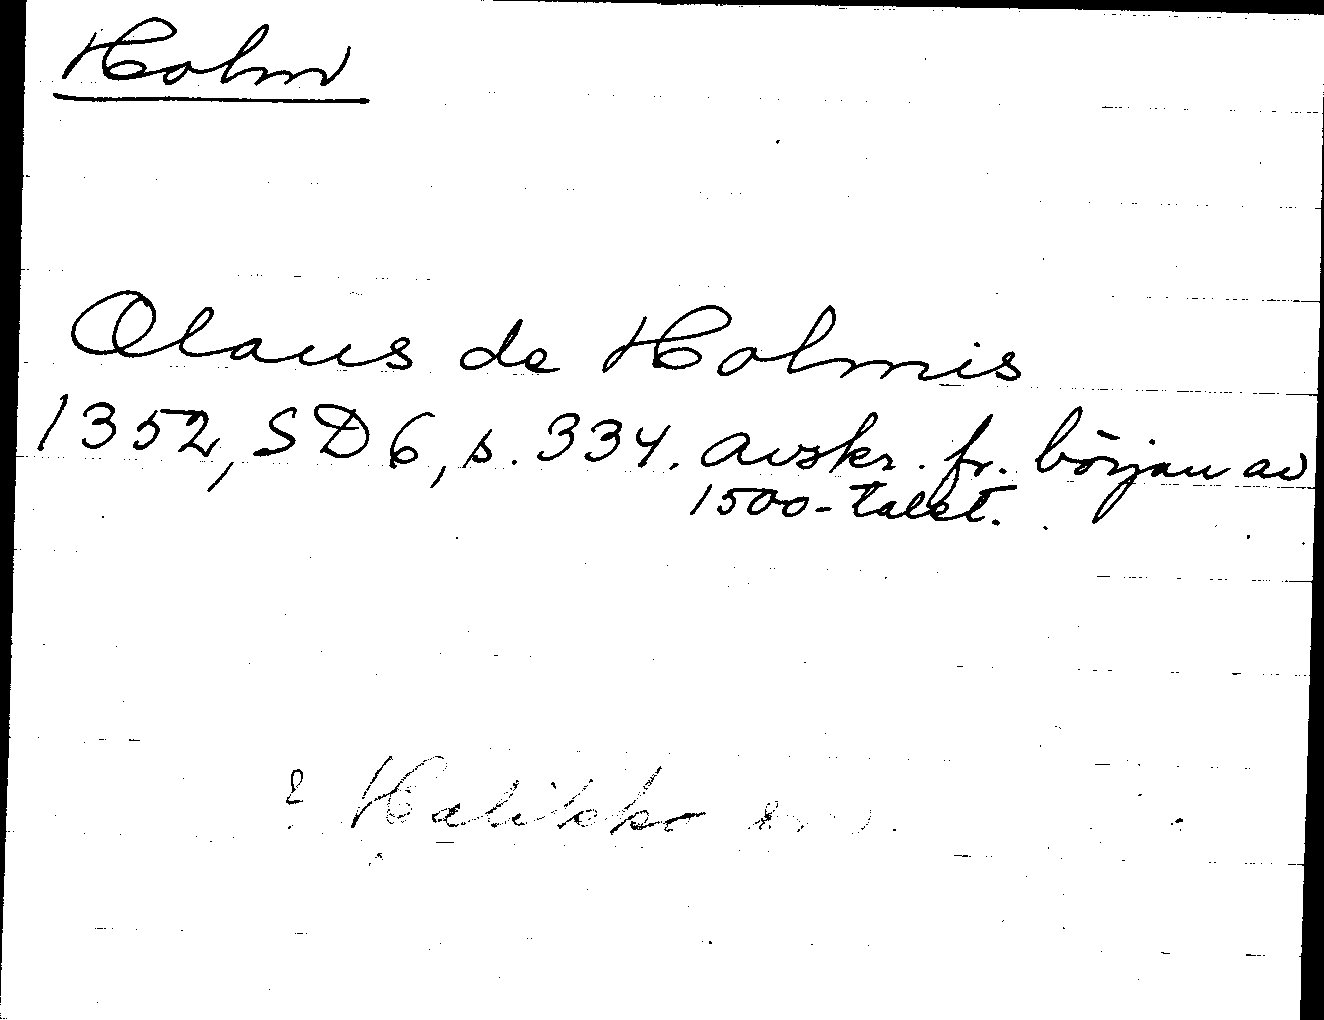 Holm
Olaus de Holmis
1352, SD 6, s. 334. avskr. fr. början av
1500-talet.
? Halikko